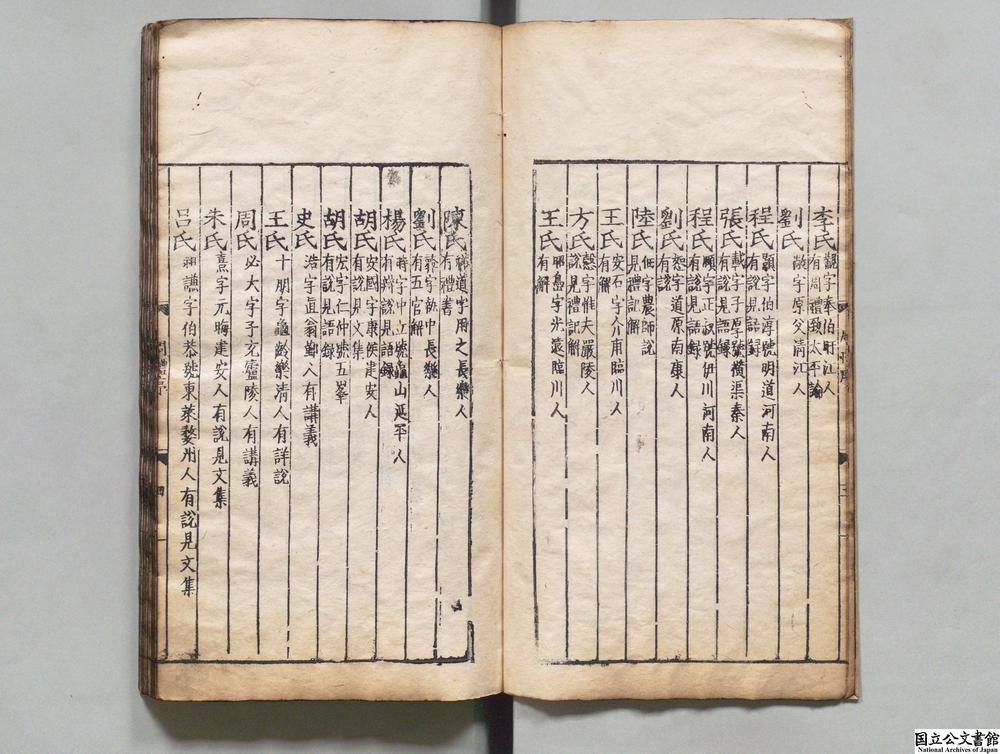 李氏覯字奉伯盱江人有周禮致太平論
劉氏敞字原父清江人
程氏顥字伯淳號明道河南人有說見語録
張氏載字子厚號橫渠秦人有說見語録
程氏頤字正叔號伊川河南人有說見語録
劉氏恕字道原南康人有說
陸氏佃字農師說見禮記解
王氏安石字介甫臨川人有解
方氏慤字惟夫嚴陵人說見禮記解
王氏昭禹字光遠臨川人有解
陳氏祥道字用之長樂人有禮書
劉氏彝字執中長樂人有五官解
楊氏時字中立號龜山延平人有辯說見語録
胡氏安國字康侯建安人有說見文集
胡氏宏字仁仲號五峯有說見語録
史氏浩字直翁鄞人有講義
王氏十朋字龜齡樂清人有詳說
周氏必大字子充廬陵人有講義
朱氏熹字元晦建安人有說見文集
呂氏祖謙字伯恭號東萊婺州人有說見文集
四
国立公文書館
National Archives of Japan